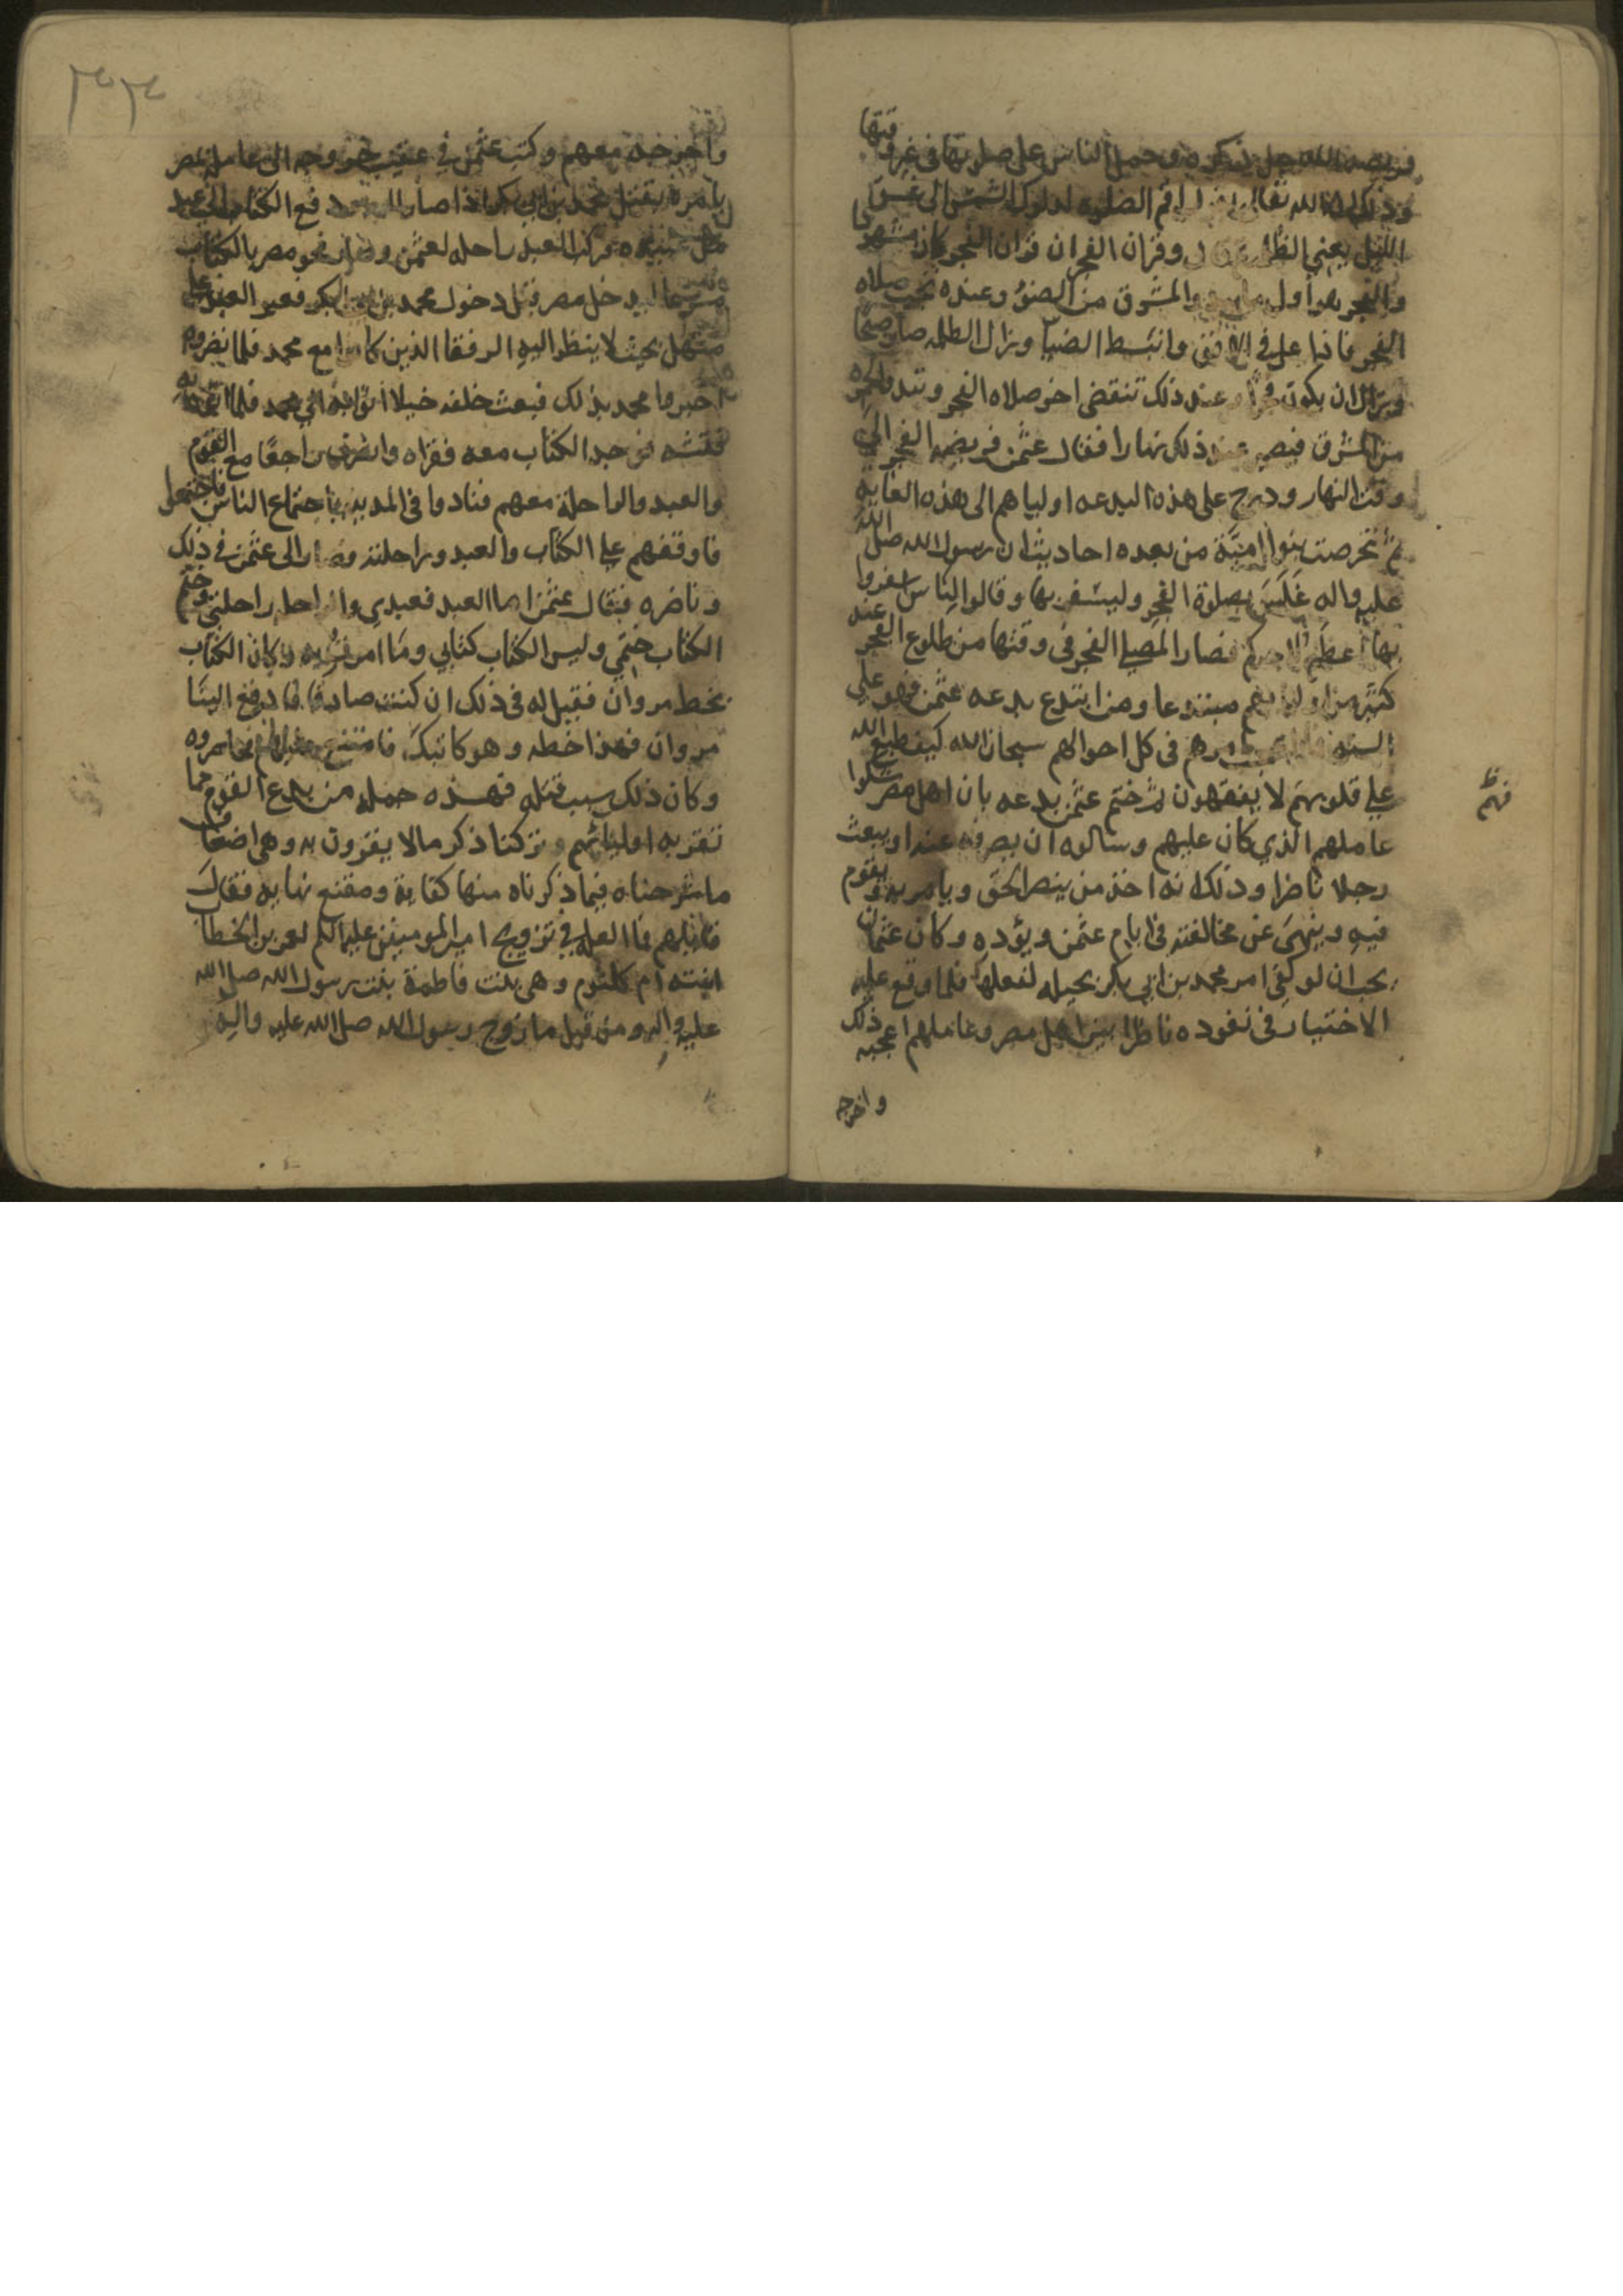 فريضه الله جل ذكره وحمل الناس على صلوتها في غير وقتها
وذلك ان الله تعالى اقم الصلوه لدلوك الشمس الى غسق
الليل يعني وقران الفجر ان قران الفجر كان مشهودا
والفجر هو اول والمشرق من الضو وعنده تجب صلاه
الفجر فاذا على في الافق وانبسط الضيا وزال الظلمه صار صبحا
وزال ان يكون عند ذلك تنقضى اخر صلاه الفجر وتبدو الحمره
من المشرق فيصير عند ذلك نهارا فقال عثمن فريضه الفجر الى
وقت النهار ودرج على هذه البدعه اولياهم الى هذه الغايه
ثم تخرصت بنوا امية من بعده احاديث ان رسول الله صلى الله
عليه واله غلس بصلوة الفجر وليسفر بها وقالوا للناس اسفروا
بها اعظم لاجركم فصار المصلي الفجر في وقتها من طلوع الفجر عند
كثير من اوليايهم مبتدعا ومن ابتدع بدعه عثمن فهو على
السنه في كل احوالهم سبحان الله كيف طبع الله
على قلوبهم لا يفقهون ثم ختم عثمن بدعه بان اهل مصر شكوا
عاملهم الذي كان عليهم وسالوه ان يصرفه عنهم او يبعث
رجلا ناضرا وذلك انه اخذ من ينصر الحق ويامر به ويقوم
فيه وينهى عن مخالفته في ايام عثمن ويؤده وكان عثمان
يحب ان لو كفى امر محمد بن ابي بكر بحيله لفعلها فلما وقع عليه
الاختيار في نفوذه ناظرا بين اهل مصر وعاملهم اعجبه ذلك
واخرجه
فهم
٣٣
واخرجه معهم وكتب عثمن في عقيب خروجه الى عامله بمصر
يامره بقتل محمد بن ابي بكر اذا صار اليه ودفع الكتاب الى عبد
من عبيده فركب العبد راحله لعثمن وصار نحو مصر بالكتاب
مسرعا ليدخل مصر قبل دخول محمد بن ابي بكر فعبر العبد على
منهل بحيث لا ينظر اليه الرفقا الذين كانوا مع محمد فلما نضروه
اخبروا محمد بذلك فبعث خلفه خيلا اتوا به الي محمد فلما اتوا به
فتشه فوجد الكتاب معه فقراه وانصرف راجعا مع القوم
والعبد والراحلة معهم فنادوا في المدينه باجتماع الناس فاجتمعوا
فاوقفهم على الكتاب والعبد وراحلته وصار الى عثمن في ذلك
وناضره فقال عثمن اما العبد فعبدي والراحله راحلتي وختم
الكتاب ختمي وليس الكتاب كتابي وما امرت به وكان الكتاب
بخط مروان فقيل له في ذلك ان كنت صادقا فادفع الينا
مروان فهذا خطه وهو كاتبك فامتنع عليهم فحاصروه
وكان ذلك سبب قتله فهذه جمله من بدع القوم مما
تقر به اوليائهم وتركنا ذكر ما لا يقرون به وهي اضعاف
ما شرحناه فيما ذكرناه منها كفاية ومقنع ونهايه فقال
قائلهم فما العله في تزويج امير المومنين عليه السلم لعمر بن الخطاب
ابنته ام كلثوم وهي بنت فاطمة بنت رسول الله صلى الله
عليه واله ومن قبل ما زوج رسول الله صلى الله عليه واله